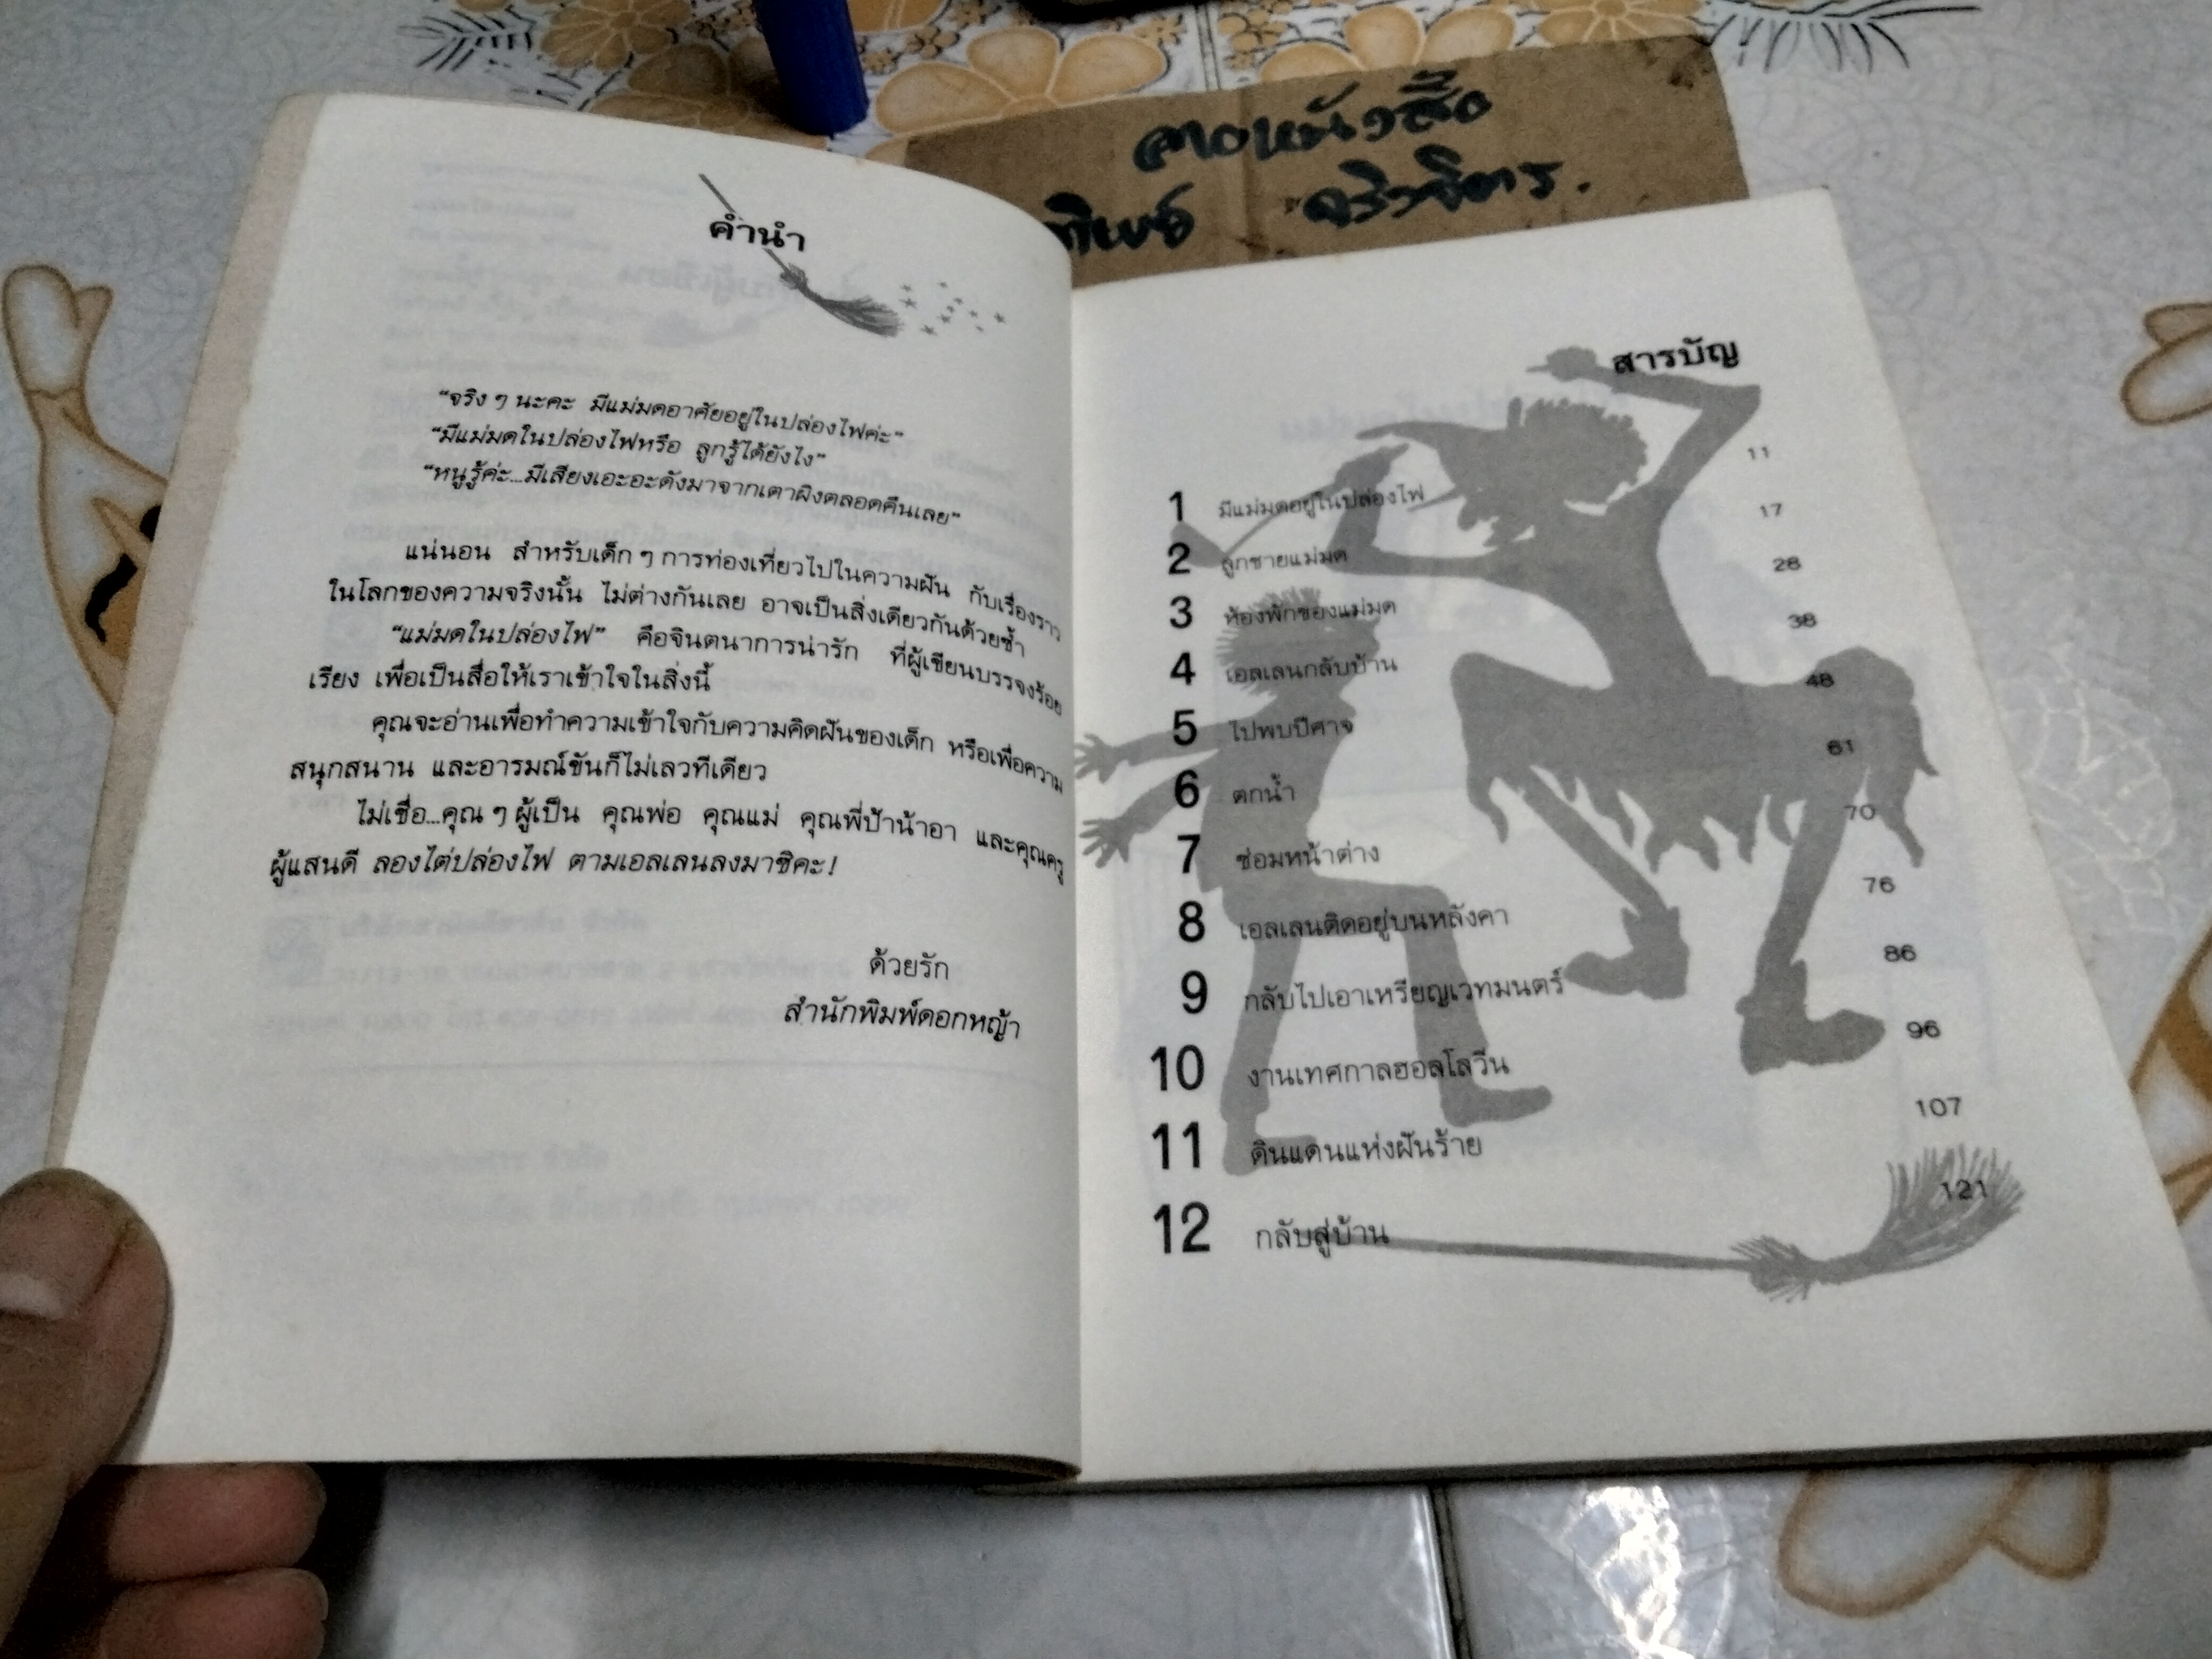 คำนำ
"จริง ๆ นะคะ มีแม่มดอาศัยอยู่ในปล่องไฟค่ะ"
"มีแม่มดในปล่องไฟหรือ ลูกรู้ได้ยังไง"
"หนูรู้ค่ะ...มีเสียงเอะอะดังมาจากเตาผิงตลอดคืนเลย"
แน่นอน สำหรับเด็ก ๆ การท่องเที่ยวไปในความฝัน กับเรื่องราว
ในโลกของความจริงนั้น ไม่ต่างกันเลย อาจเป็นสิ่งเดียวกันด้วยซ้ำ
"แม่มดในปล่องไฟ" คือจินตนาการน่ารัก ที่ผู้เขียนบรรจงร้อย
เรียง เพื่อเป็นสื่อให้เราเข้าใจในสิ่งนี้
คุณจะอ่านเพื่อทำความเข้าใจกับความคิดฝันของเด็ก หรือเพื่อความ
สนุกสนาน และอารมณ์ขันก็ไม่เลวทีเดียว
ไม่เชื่อ...คุณ ๆ ผู้เป็น คุณพ่อ คุณแม่ คุณพี่ป้าน้าอา และคุณครู
ผู้แสนดี ลองไต่ปล่องไฟ ตามเอลเลนลงมาซิคะ!
ด้วยรัก
สำนักพิมพ์ดอกหญ้า
หนังสือ
สารบัญ
1 มีแม่มดอยู่ในปล่องไฟ 11
2 ลูกชายแม่มด 17
3 ห้องพักของแม่มด 28
4 เอลเลนกลับบ้าน 38
5 ไปพบปีศาจ 48
6 ตกน้ำ 61
7 ซ่อมหน้าต่าง 70
8 เอลเลนติดอยู่บนหลังคา 76
9 กลับไปเอาเหรียญเวทมนตร์ 86
10 งานเทศกาลฮอลโลวีน 96
11 ดินแดนแห่งฝันร้าย 107
12 กลับสู่บ้าน 121